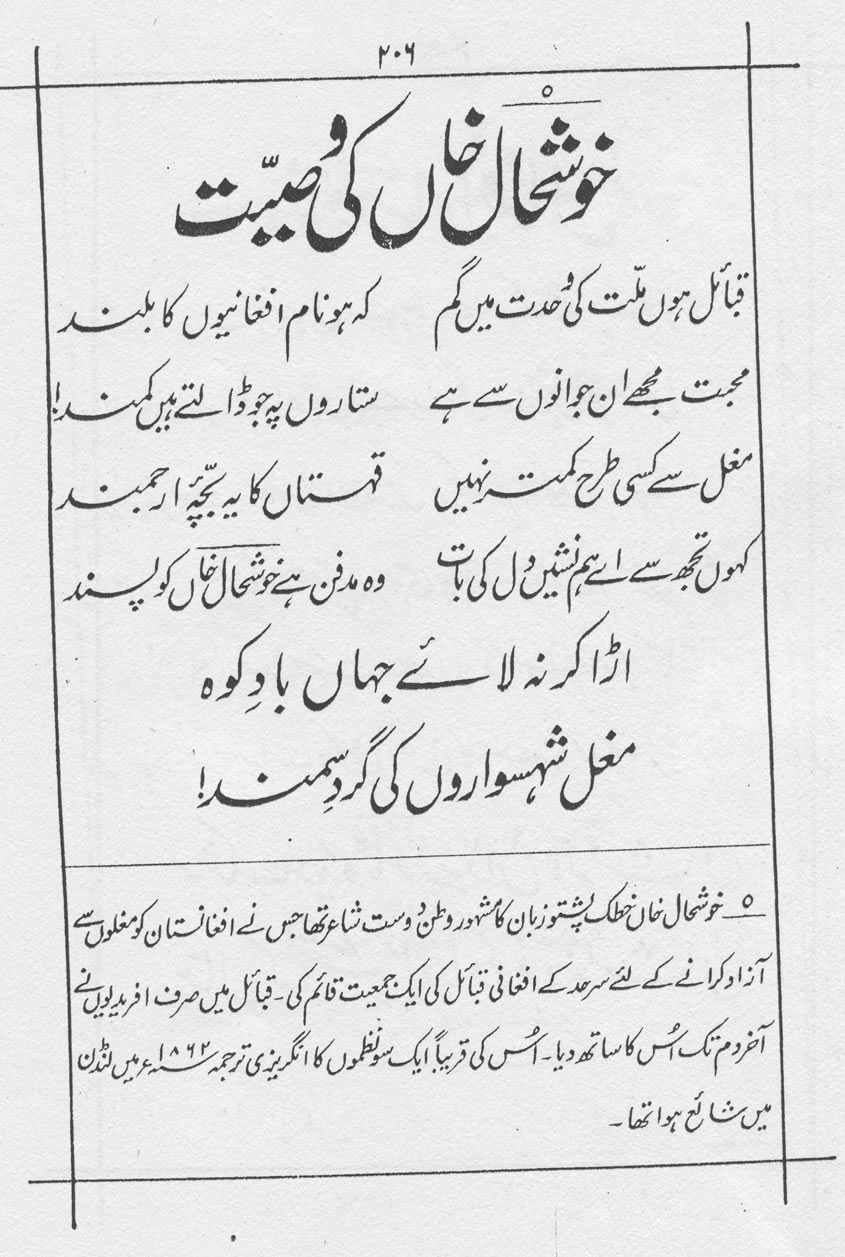 ۲۰۶
خوشحال خاں کی وصیّت
قبائل ہوں ملّت کی وحدت میں گم کہ ہو نام افغانیوں کا بلند
محبت مجھے ان جوانوں سے ہے ستاروں پہ جو ڈالتے ہیں کمند!
مغل سے کسی طرح کمتر نہیں قہستاں کا یہ بچّۂ ارجمند
کہوں تجھ سے اے ہم نشیں دل کی بات وہ مدفن ہے خوشحال خاں کو پسند
اڑا کر نہ لائے جہاں بادِ کوہ
مغل شہسواروں کی گردِ سمند!
ہ خوشحال خاں خٹک پشتو زبان کا مشہور وطن دوست شاعر تھا جس نے افغانستان کو مغلوں سے
آزاد کرانے کے لئے سرحد کے افغانی قبائل کی ایک جمعیت قائم کی۔ قبائل میں صرف افریدیوں نے
آخر دم تک اُس کا ساتھ دیا۔ اُس کی قریباً ایک سو نظموں کا انگریزی ترجمہ ۱۸۶۲؁ء میں لنڈن
میں شائع ہوا تھا۔